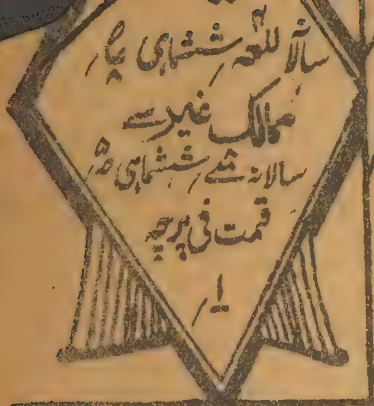 سالانہ للعہ ششماہی
ممالک غیر سے
سالانہ ششماہی
قیمت فی پرچہ
۱؍